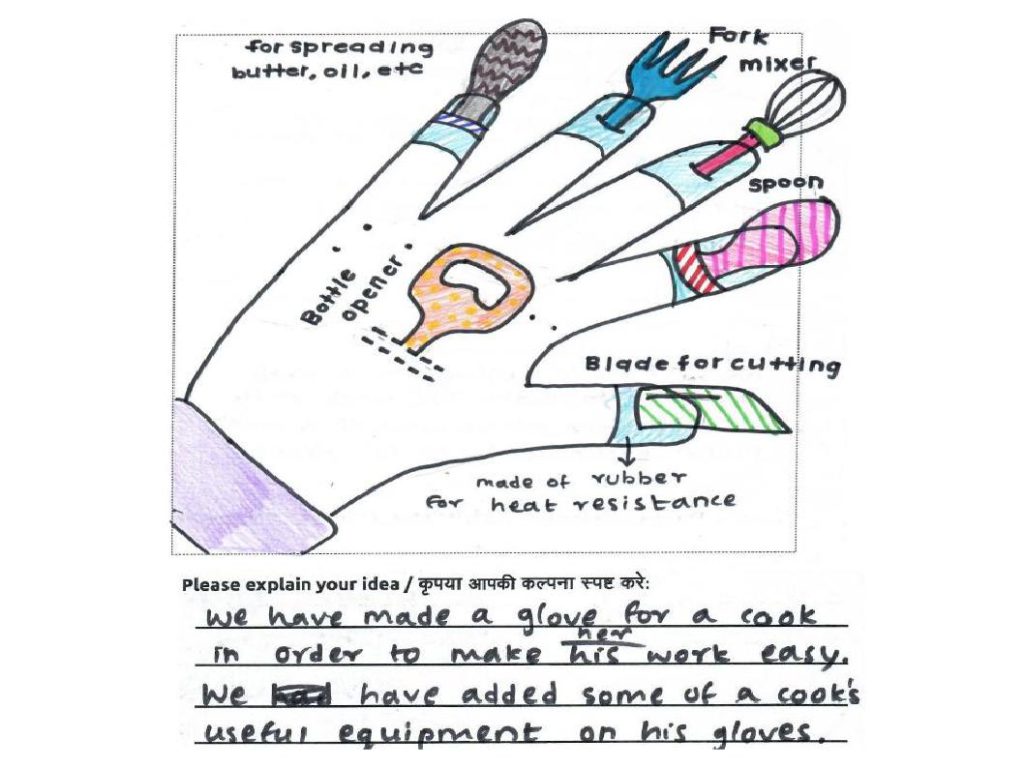 for spreading
butter, oil, etc
Fork
mixer
spoon
Bottle
opener
Blade for cutting
made of rubber
for heat resistance
Please explain your idea / कृपया आपकी कल्पना स्पष्ट करे:
We have made a glove for a cook
her
in order to make his work easy.
We had have added some of a cook's
useful equipment on his gloves.